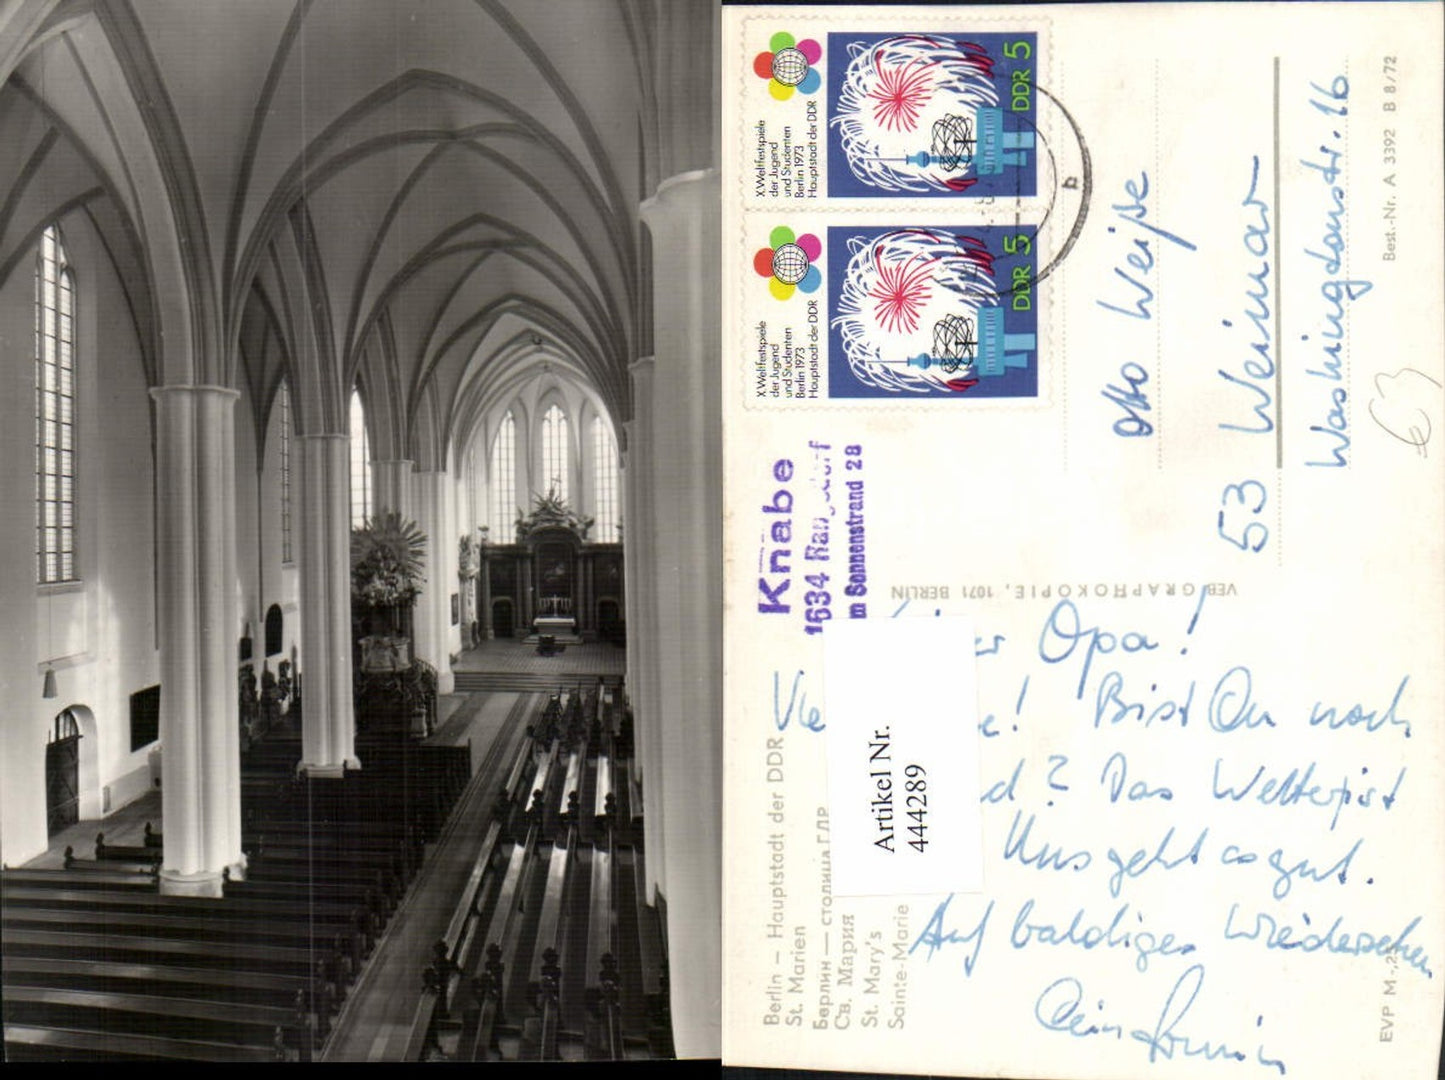 X.Weltfestspiele
der Jugend
und Studenten
Berlin 1973
Hauptstadt der DDR
DDR 5
X.Weltfestspiele
der Jugend
und Studenten
Berlin 1973
Hauptstadt der DDR
DDR 5
b
Knabe
1634
m Sonnenstrand 28
Otto Weiße
53 Weimar
Washingtonstr. 16
Best.-Nr. A 3392 B 8/72
€3
VEB GRAPHOKOPIE, 1071 BERLIN
Opa!
Bist Du noch
? Das Wetter ist
Uns geht es gut.
Auf baldiges Wiedersehen
Dein
Artikel Nr.
444289
Berlin – Hauptstadt der DDR
St. Marien
Берлин — столица ГДР
Св. Мария
St. Mary's
Sainte-Marie
EVP M -,25